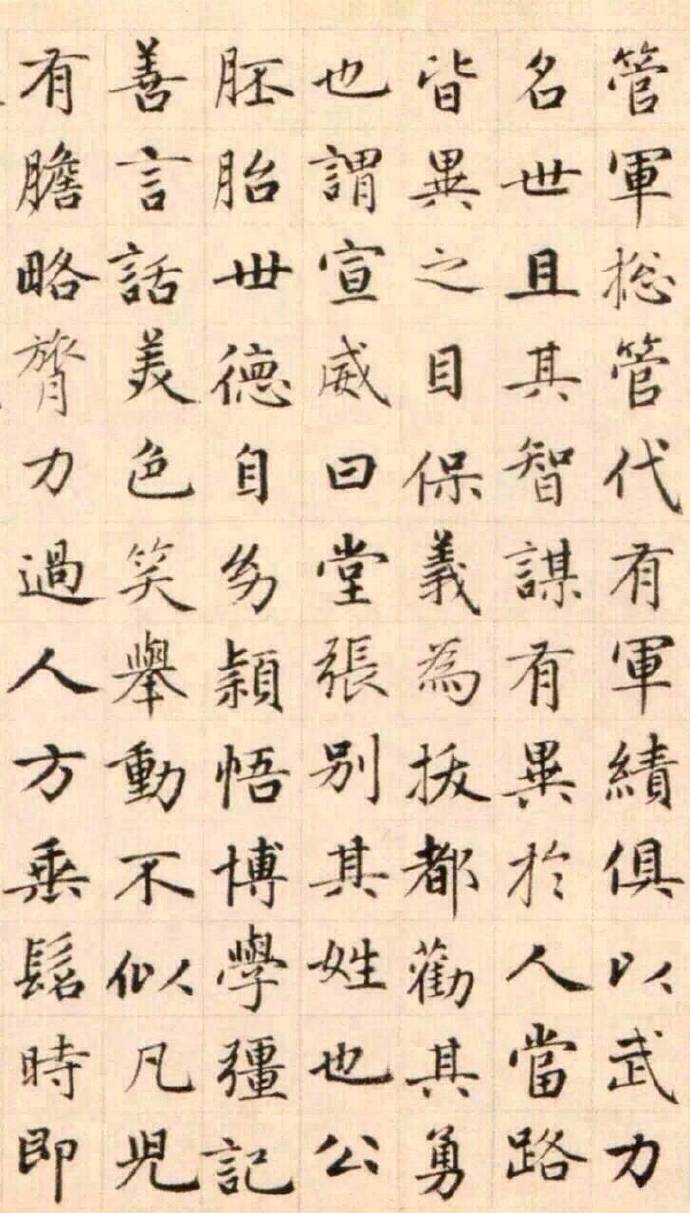 管軍捴管代有軍績俱以武力
名世且其智謀有異於人當路
皆異之目保義為拔都勸其勇
也謂宣威曰堂張別其姓也公
胚胎世德自幼穎悟博學彊記
善言話美色笑舉動不似凡兒
有膽略膂力過人方垂髫時即